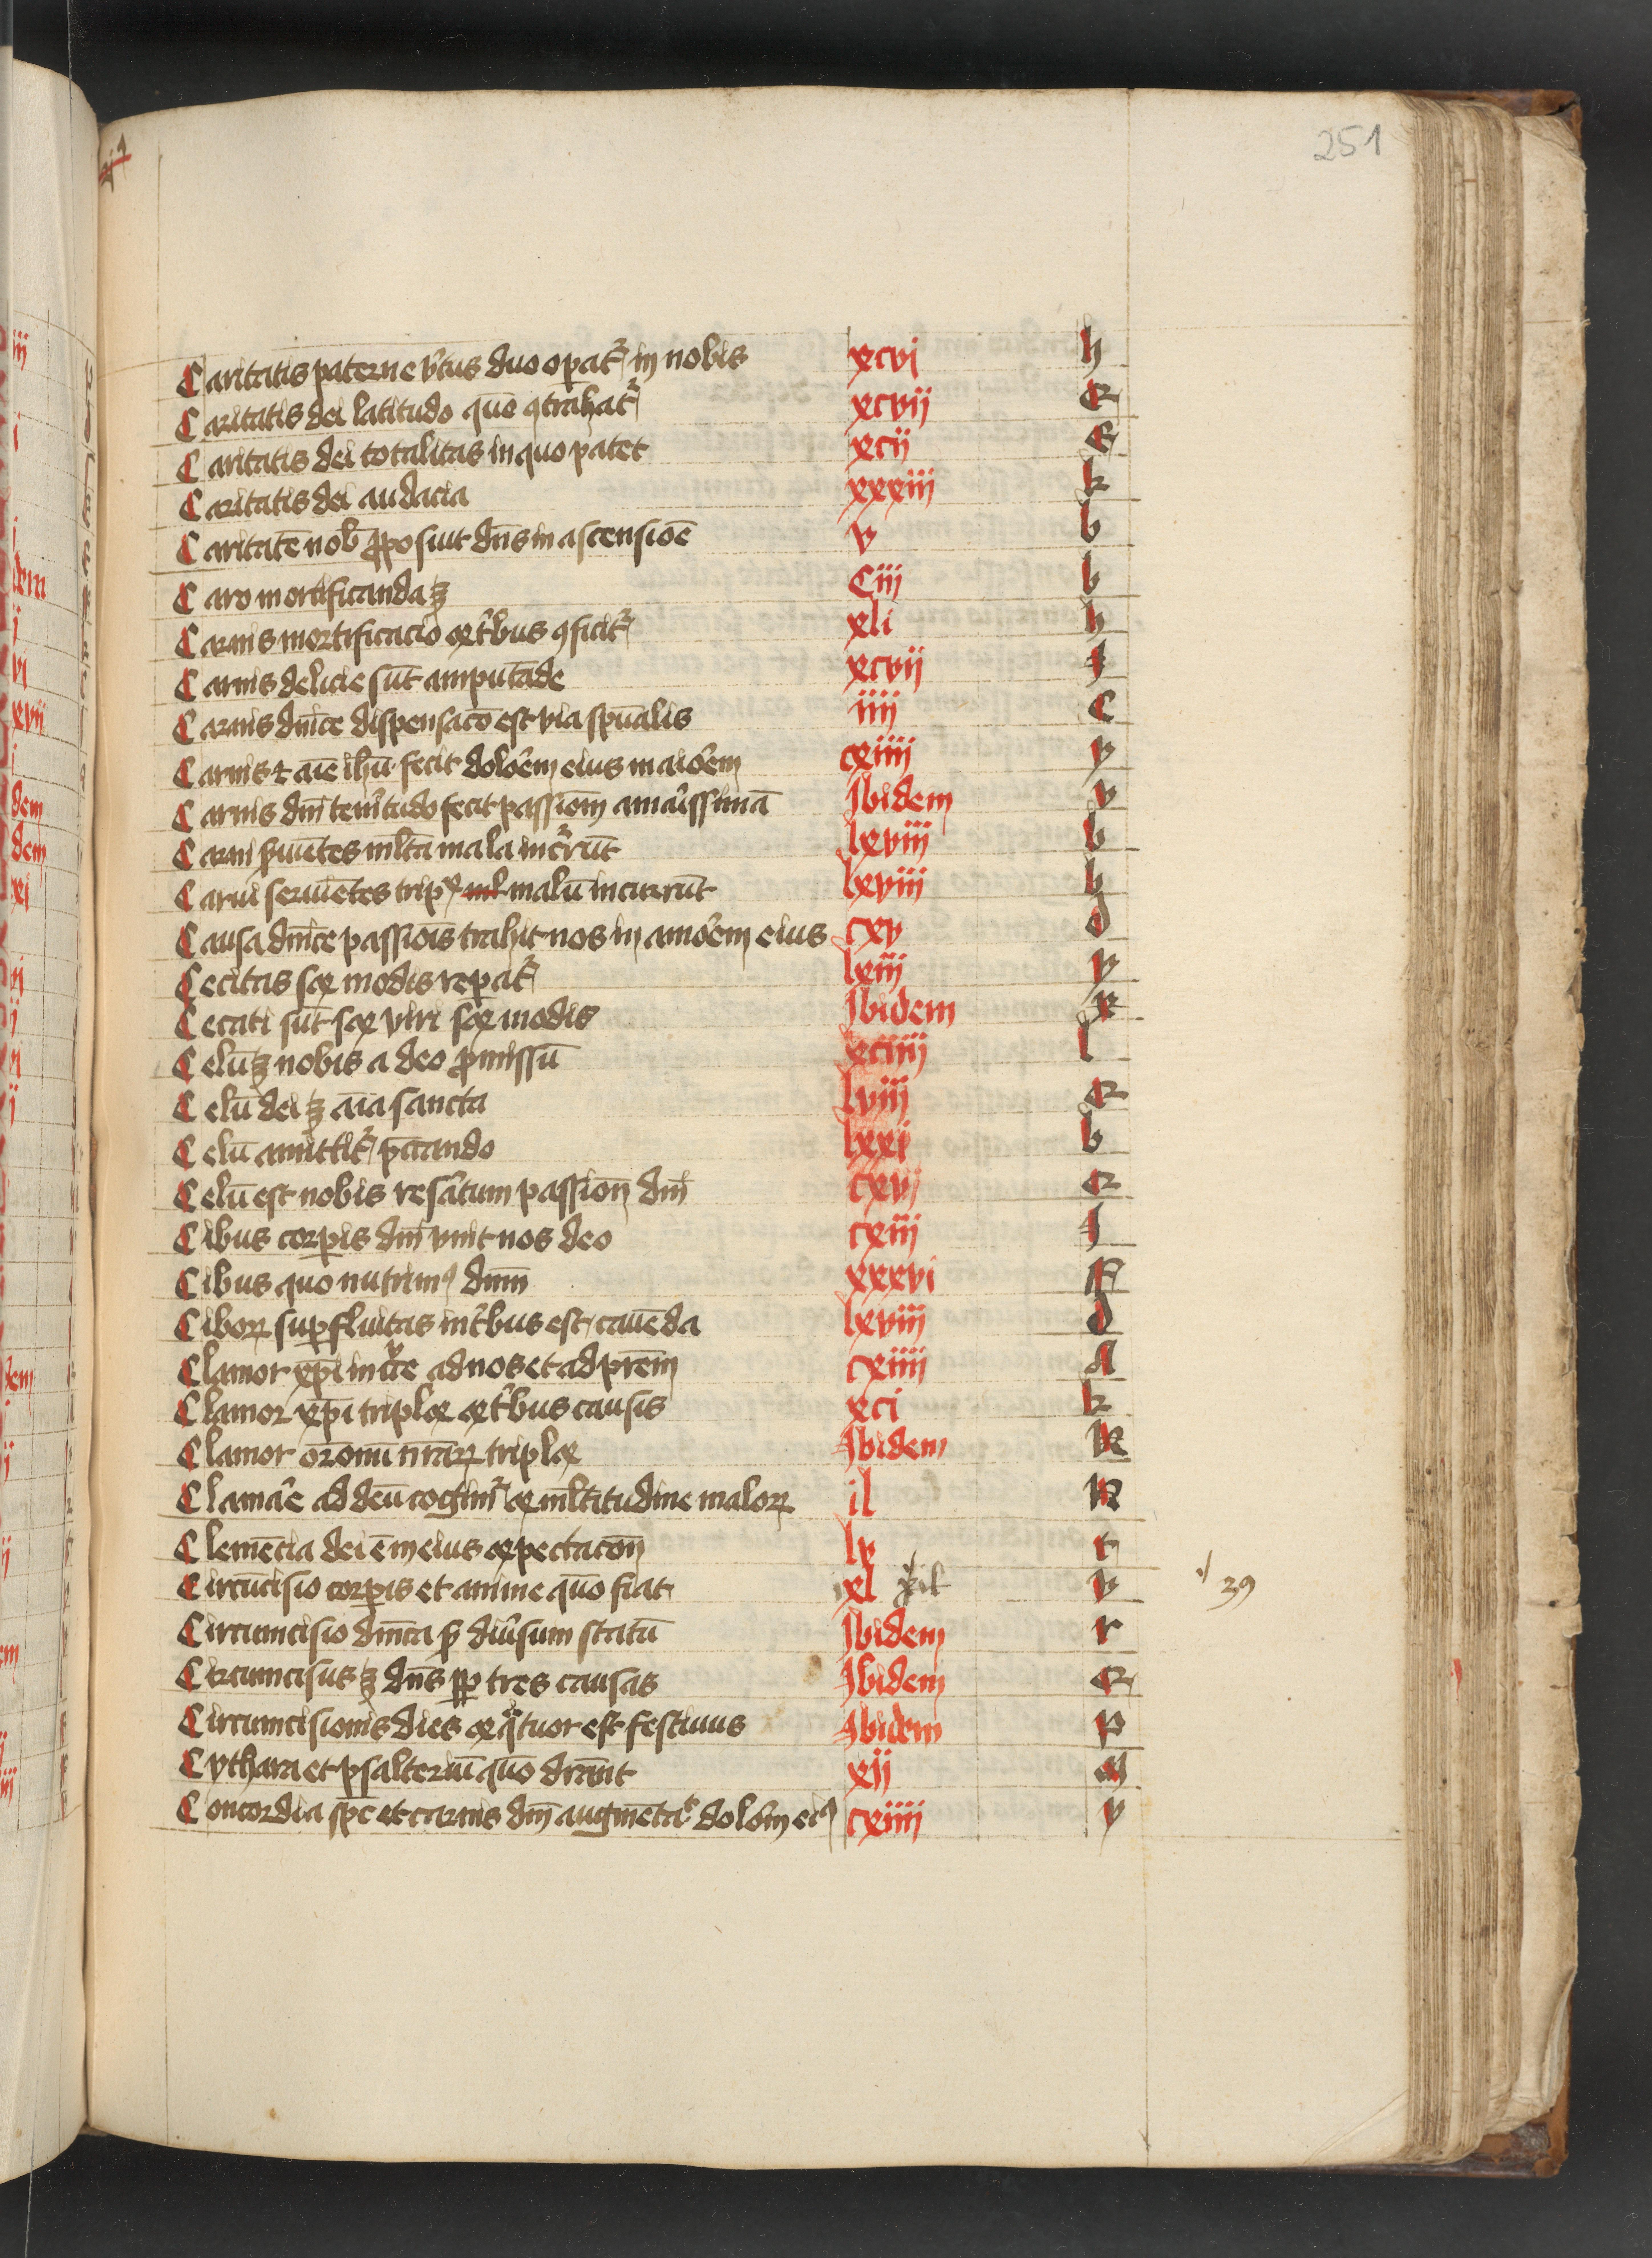 251
Caritatis paterne v̾tus duo op̲at᷑ in nobis xcvj h
Caritatis dei latitudo quo̅ ꝯtrahat᷑ xcvij e
Caritatis dei totalitas in quo patet xcij e
Caritatis dei audacia xxxiij k
Caritate̅ nob̅ p̲posuit dn̅s in ascensio̅e v b
Caro mortificanda ꝫ Ciij b
Carnis mortificacio ex t̾bus ꝯficit᷑ xli h
Carnis delicie su̅t amputa̅de xcvij f
Carnis dn̅ice dispensaco̅ est via spu̅alis iiij c
Carnis ⁊ ai̅e ih̅u fecit dolo̾em eius maio̾em cxiiij y
Carnis dn̅i ten̾itudo fecit passio̅em ama̾issima̅ Ibidem v
Carni s̾uie̅tes ml̅ta mala inc᷑ru̅t lxviij b
Carni seruie̅tes trip̲x malu̅ incurru̅t lxviij h
Causa dn̅ice passio̅is trahit nos in amo̾em eius cxv d
Cecitas sex modis rep̲at᷑ lxiij y
Cecati su̅t sex viri sex modis Ibidem x
Celu̅ ꝫ nobis a deo p̲missu̅ xciiij l
Celu̅ dei ꝫ ai̅a sancta lviij e
Celu̅ amittit᷑ pec̅ando lxxj b
Celu̅ est nobis res̾atum passio̅e dn̅i cxvj e
Cibus corp̲is dn̅i vnit nos deo cxiij f
Cibus quo nutrim⁹ dn̅m xxxvi F
Ciboꝝ sup̲fluitas in t̾bus est caue̅da lxviij d
Clamor xp̅i in c̾ce ad nos et ad pr̅em cxiiij A
Clamor xp̅i triplex ex t̾bus causis xci k
Clamor or̅onu̅ nr̅aꝝ triplex Ibidem k
Clama̾e ad deu̅ cogim᷑ ex ml̅titudine maloꝝ il k
Cleme̅cia dei e̅ in eius expectaco̅e lv t
Circu̅cisio corp̲is et anime quo̅ fiat xl xil v ·/ 39
Circumcisio dn̅ica s̾ diu̾sum statu̅ Ibidem r
Circumcisus ꝫ dn̅s p̲p tres causas Ibidem e
Circumcisionis dies ex q̾tuor est festiuus Ibidem p
Cythara et psalteriu̅ quo̅ dr̅ant xij m
Concordia sp̅c et carnis dn̅i augme̅tat᷑ dolo̾em ei⁹ cxiiij y